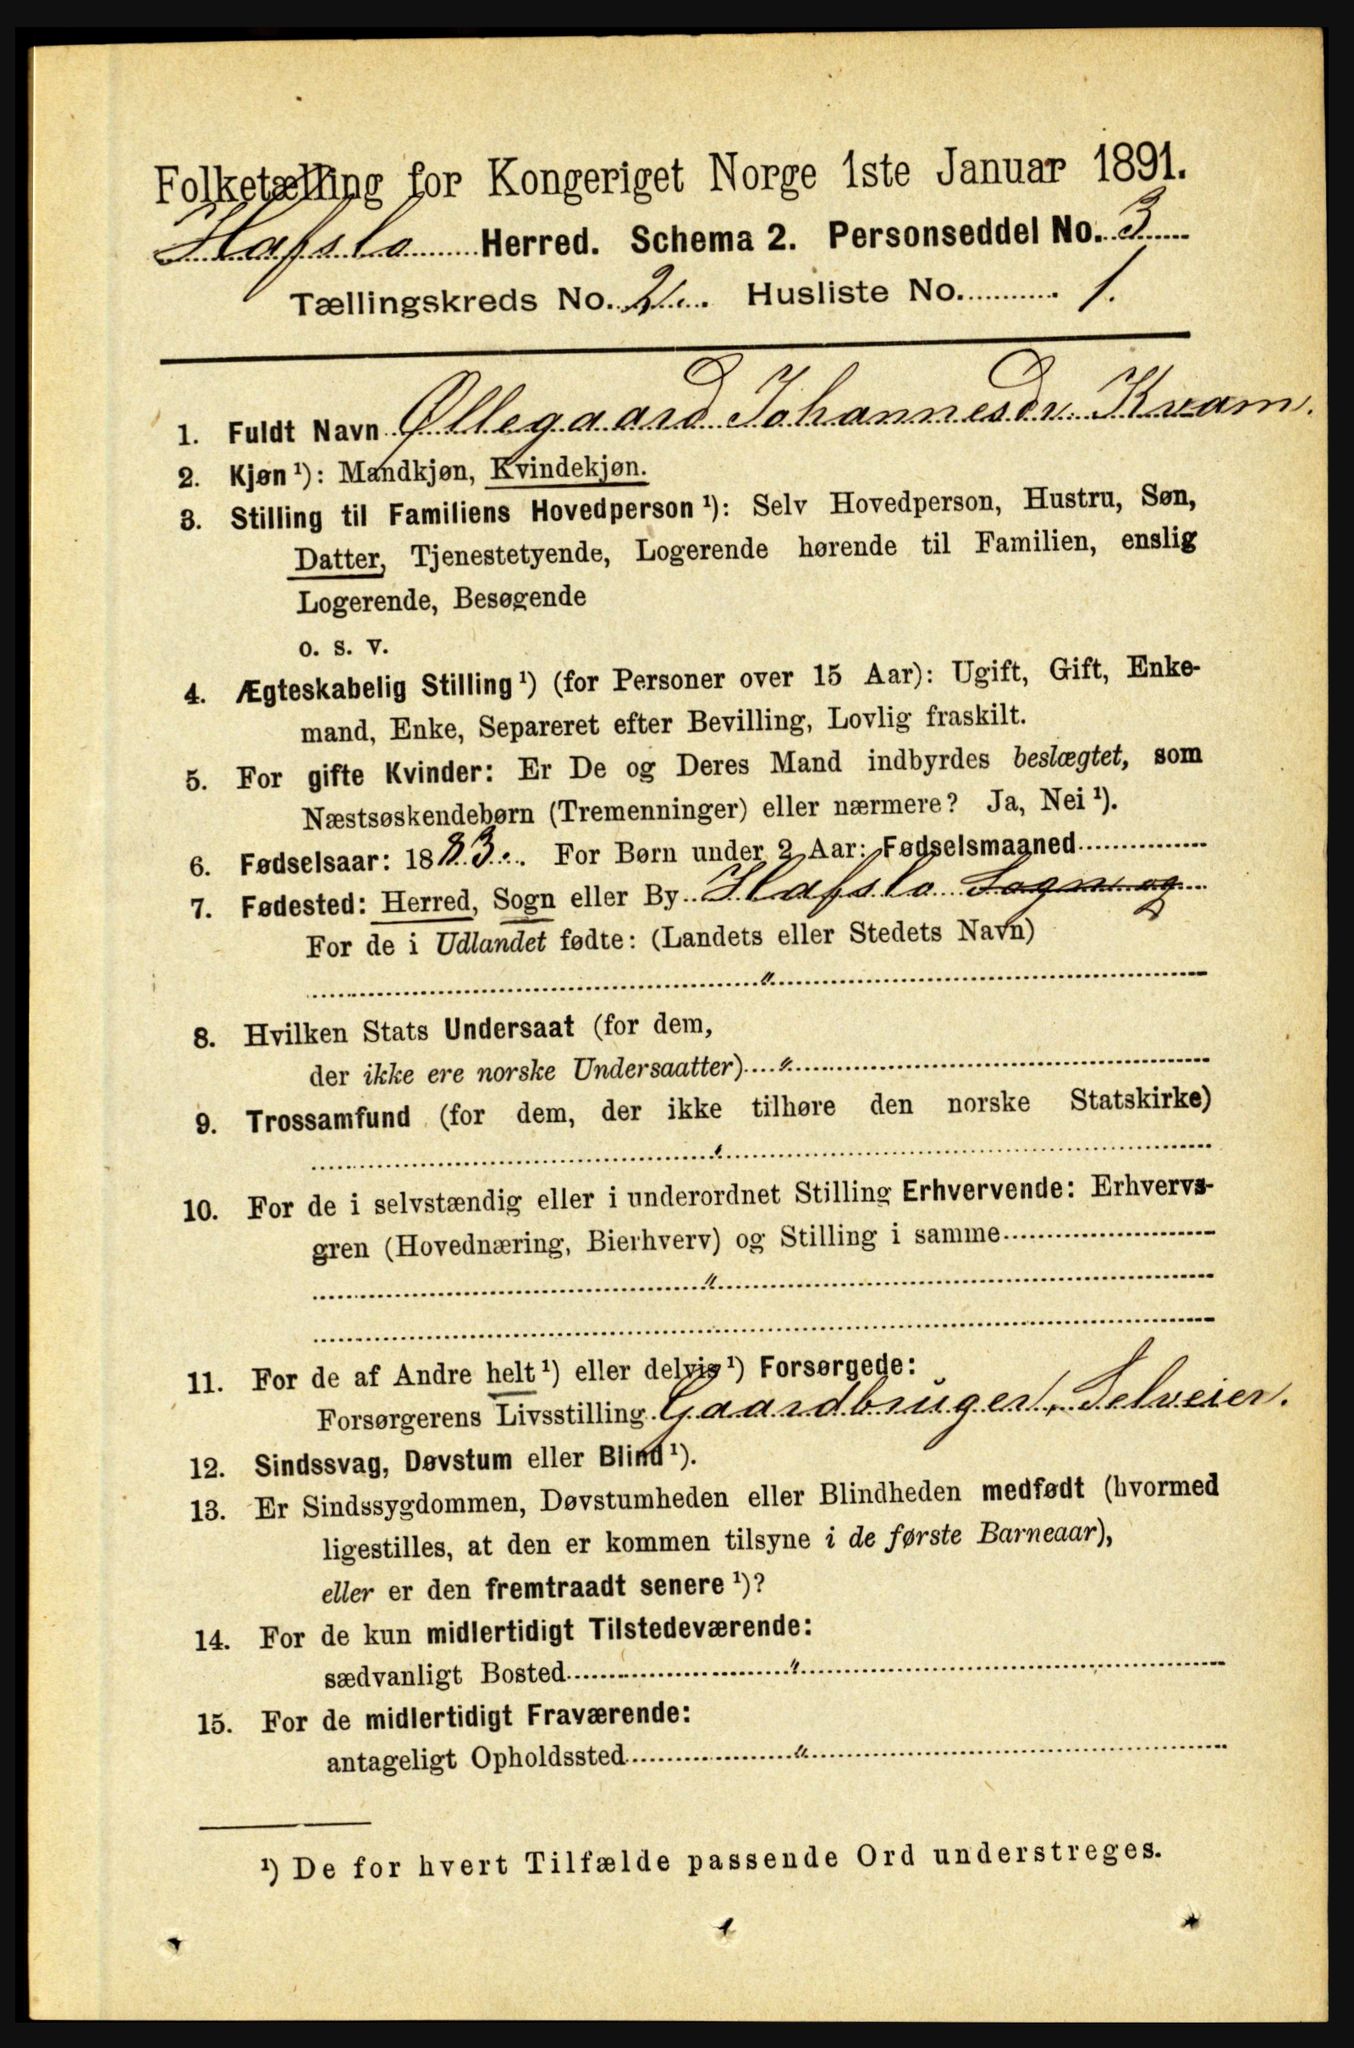 Folketælling for Kongeriget Norge 1ste Januar 1891.
Hafslo Herred. Schema 2. Personseddel No. 3
Tællingskreds No. 2. Husliste No. 1.
1. Fuldt Navn Øllegaard Johannesdr. Kvam.
2. Kjøn ¹): Mandkjøn, Kvindekjøn.
3. Stilling til Familiens Hovedperson ¹): Selv Hovedperson, Hustru, Søn,
Datter, Tjenestetyende, Logerende hørende til Familien, enslig
Logerende, Besøgende
o. s. v.
4. Ægteskabelig Stilling ¹) (for Personer over 15 Aar): Ugift, Gift, Enke-
mand, Enke, Separeret efter Bevilling, Lovlig fraskilt.
5. For gifte Kvinder: Er De og Deres Mand indbyrdes beslægtet, som
Næstsøskendebørn (Tremenninger) eller nærmere? Ja, Nei ¹).
6. Fødselsaar: 1883. For Børn under 2 Aar: Fødselsmaaned
7. Fødested: Herred, Sogn eller By Hafslo Sogn og
For de i Udlandet fødte: (Landets eller Stedets Navn)
"
8. Hvilken Stats Undersaat (for dem,
der ikke ere norske Undersaatter) "
9. Trossamfund (for dem, der ikke tilhøre den norske Statskirke)
"
10. For de i selvstændig eller i underordnet Stilling Erhvervende: Erhvervs-
gren (Hovednæring, Bierhverv) og Stilling i samme
"
11. For de af Andre helt ¹) eller delvis ¹) Forsørgede:
Forsørgerens Livsstilling Gaardbruger, Selveier.
12. Sindssvag, Døvstum eller Blind ¹).
13. Er Sindssygdommen, Døvstumheden eller Blindheden medfødt (hvormed
ligestilles, at den er kommen tilsyne i de første Barneaar),
eller er den fremtraadt senere ¹)?
14. For de kun midlertidigt Tilstedeværende:
sædvanligt Bosted "
15. For de midlertidigt Fraværende:
antageligt Opholdssted "
¹) De for hvert Tilfælde passende Ord understreges.